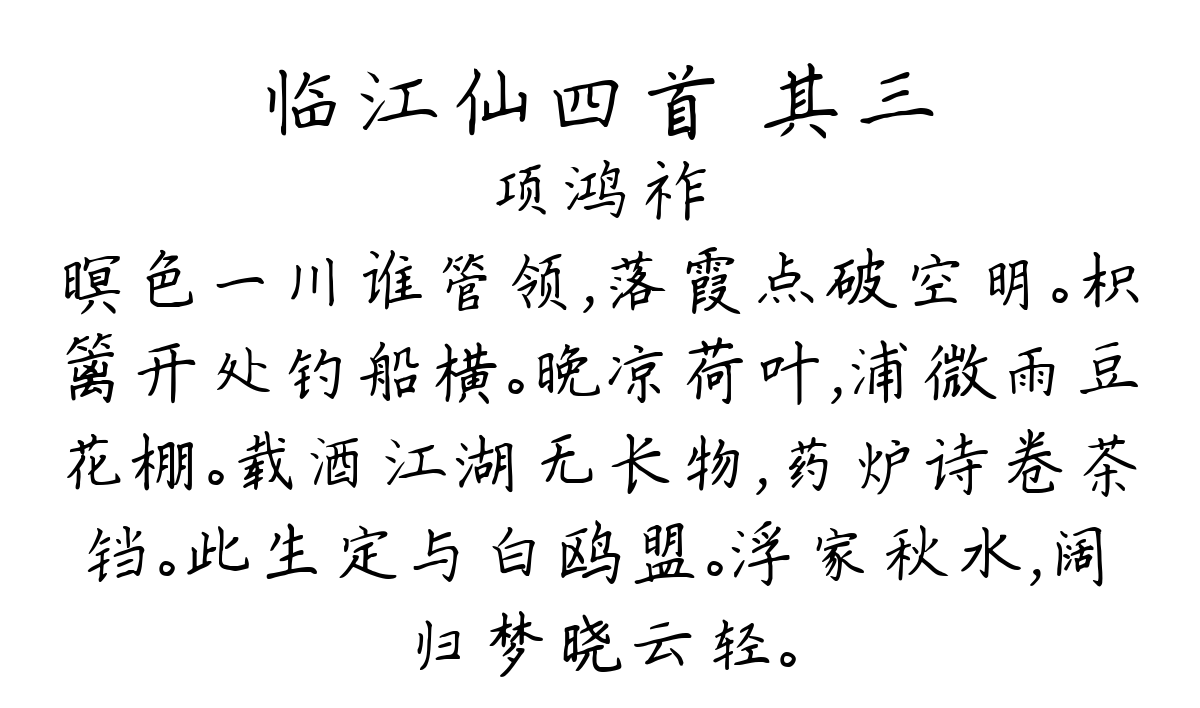 临江仙四首 其三
项鸿祚
暝色一川谁管领,落霞点破空明。枳
篱开处钓船横。晚凉荷叶,浦微雨豆
花棚。载酒江湖无长物,药炉诗卷茶
铛。此生定与白鸥盟。浮家秋水,阔
归梦晓云轻。